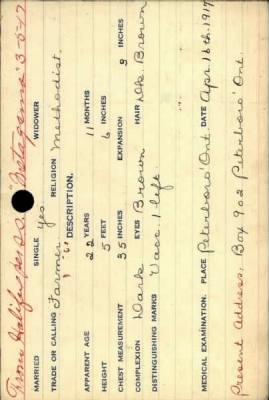 From Halifax per S.S. "Metagama" 3-5-17
MARRIED SINGLE Yes. WIDOWER
TRADE OR CALLING Farmer RELIGION Methodist.
DESCRIPTION.
APPARENT AGE 22 YEARS 11 MONTHS
HEIGHT 5 FEET 6 INCHES
CHEST MEASUREMENT 35 INCHES EXPANSION 3 INCHES
COMPLEXION Dark EYES Brown HAIR Dk. Brown
DISTINGUISHING MARKS Vacc. 1 left.
MEDICAL EXAMINATION. PLACE Peterboro' Ont. DATE Apr. 16th. 1917
Present Address, Box 902 Peterboro' Ont.